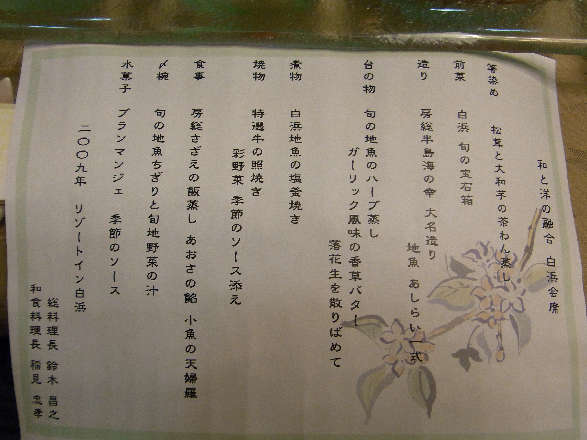 和と洋の融合 白浜会席
箸染め 松茸と大和芋の茶わん蒸し
前菜 白浜 旬の宝石箱
造り 房総半島海の幸 大名造り
地魚 あしらい一式
台の物 旬の地魚のハーブ蒸し
ガーリック風味の香草バター
落花生を散りばめて
煮物 白浜地魚の塩釜焼き
焼物 特選牛の照焼き
彩野菜 季節のソース添え
食事 房総さざえの飯蒸し あおさの餡 小魚の天婦羅
〆椀 旬の地魚ちぎりと旬地野菜の汁
水菓子 ブランマンジェ 季節のソース
二〇〇九年 リゾートイン白浜
総料理長 鈴木 昌之
和食料理長 稲見 忠孝